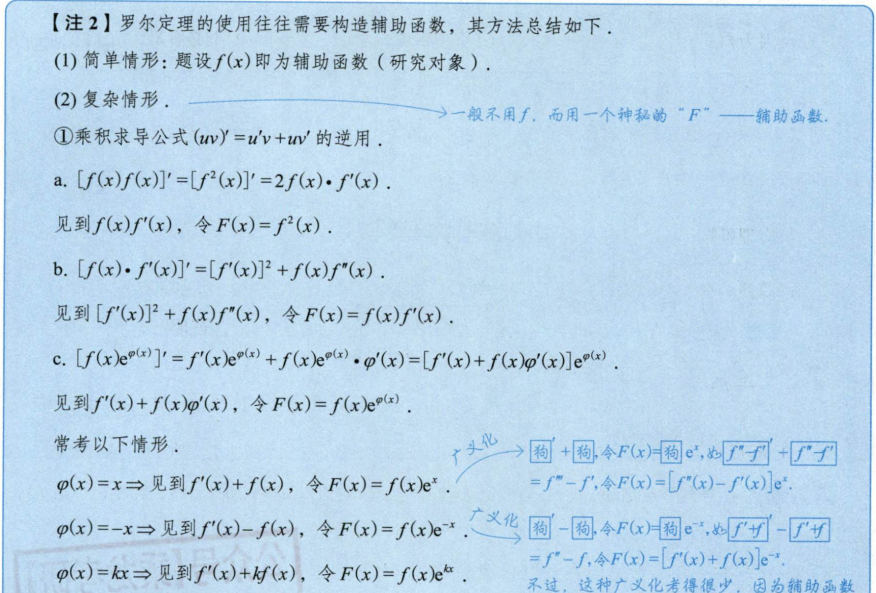 【注 2】罗尔定理的使用往往需要构造辅助函数，其方法总结如下.
(1) 简单情形：题设f(x)即为辅助函数（研究对象）.
(2) 复杂情形.
一般不用f，而用一个神秘的“F”——辅助函数.
①乘积求导公式(uv)′=u′v+uv′的逆用.
a. [f(x)f(x)]′=[f²(x)]′=2f(x)·f′(x).
见到f(x)f′(x)，令F(x)=f²(x).
b. [f(x)·f′(x)]′=[f′(x)]²+f(x)f″(x).
见到[f′(x)]²+f(x)f″(x)，令F(x)=f(x)f′(x).
c. [f(x)e^φ(x)]′=f′(x)e^φ(x)+f(x)e^φ(x)·φ′(x)=[f′(x)+f(x)φ′(x)]e^φ(x).
见到f′(x)+f(x)φ′(x)，令F(x)=f(x)e^φ(x).
常考以下情形.
φ(x)=x⇒见到f′(x)+f(x)，令F(x)=f(x)eˣ.
广义化
狗′+狗,令F(x)=狗eˣ,如f″-f′′+f″-f′
=f‴-f′,令F(x)=[f″(x)-f′(x)]eˣ.
φ(x)=-x⇒见到f′(x)-f(x)，令F(x)=f(x)e⁻ˣ.
广义化
狗′-狗,令F(x)=狗e⁻ˣ,如f′+f′-f′+f
=f″-f,令F(x)=[f′(x)+f(x)]e⁻ˣ.
φ(x)=kx⇒见到f′(x)+kf(x)，令F(x)=f(x)eᵏˣ.
不过，这种广义化考得很少，因为辅助函数